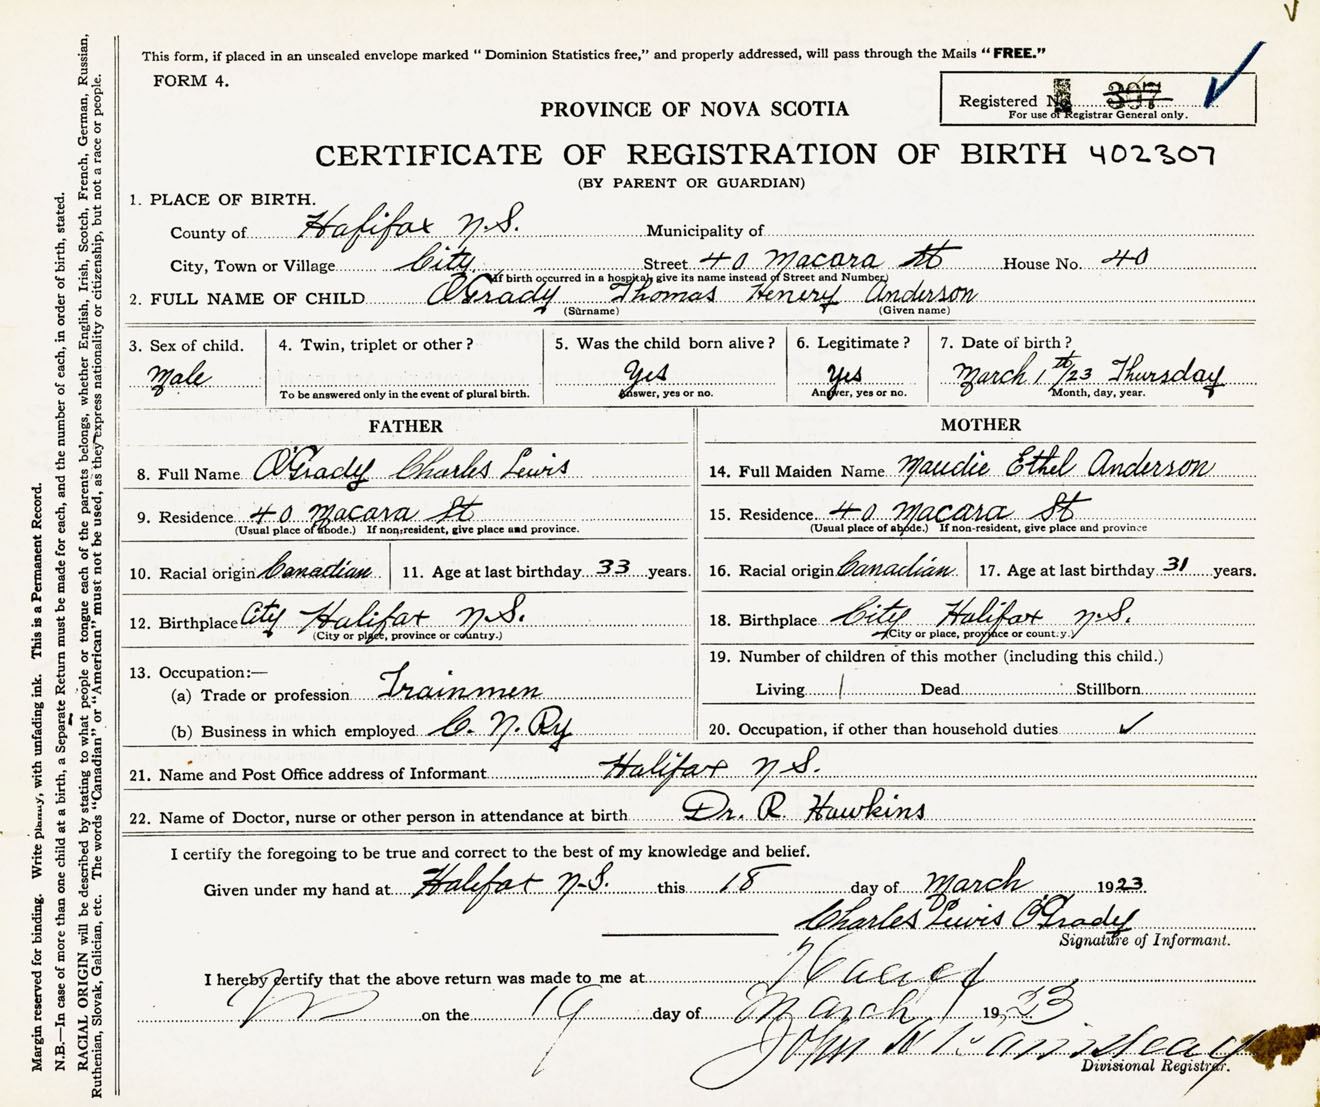 This form, if placed in an unsealed envelope marked " Dominion Statistics free," and properly addressed, will pass through the Mails " FREE."
FORM 4.
Registered No. 307
For use of Registrar General only.
PROVINCE OF NOVA SCOTIA
CERTIFICATE OF REGISTRATION OF BIRTH 402307
(BY PARENT OR GUARDIAN)
1. PLACE OF BIRTH.
County of Halifax N.S. Municipality of
City, Town or Village City Street 40 Macara St House No. 40
(If birth occurred in a hospital, give its name instead of Street and Number)
2. FULL NAME OF CHILD O'Grady Thomas Henery Anderson
(Surname) (Given name)
3. Sex of child. 4. Twin, triplet or other? 5. Was the child born alive? 6. Legitimate? 7. Date of birth?
Male Yes Yes March 1th/23 Thursday
To be answered only in the event of plural birth. Answer, yes or no. Answer, yes or no. Month, day, year.
FATHER MOTHER
8. Full Name O'Grady Charles Lewis 14. Full Maiden Name Maudie Ethel Anderson
9. Residence 40 Macara St 15. Residence 40 Macara St
(Usual place of abode.) If non-resident, give place and province. (Usual place of abode.) If non-resident, give place and province
10. Racial origin Canadian 11. Age at last birthday 33 years. 16. Racial origin Canadian 17. Age at last birthday 31 years.
12. Birthplace City Halifax N.S. 18. Birthplace City Halifax N.S.
(City or place, province or country.) (City or place, province or country.)
13. Occupation:— 19. Number of children of this mother (including this child.)
(a) Trade or profession Trainmen Living 1 Dead Stillborn
(b) Business in which employed C. N. Ry 20. Occupation, if other than household duties
21. Name and Post Office address of Informant Halifax N S.
22. Name of Doctor, nurse or other person in attendance at birth Dr. R. Hawkins
I certify the foregoing to be true and correct to the best of my knowledge and belief.
Given under my hand at Halifax N.S. this 18 day of March 1923
Charles Lewis O'Grady
Signature of Informant.
I hereby certify that the above return was made to me at
on the 19 day of March 1923
John W
Divisional Registrar.
Margin reserved for binding. Write plainly, with unfading ink. This is a Permanent Record.
N.B.—In case of more than one child at a birth, a Separate Return must be made for each, and the number of each, in order of birth, stated.
RACIAL ORIGIN will be described by stating to what people or tongue each of the parents belongs, whether English, Irish, Scotch, French, German, Russian,
Ruthenian, Slovak, Galician, etc. The words "Canadian" or "American" must not be used, as they express nationality or citizenship, but not a race or people.